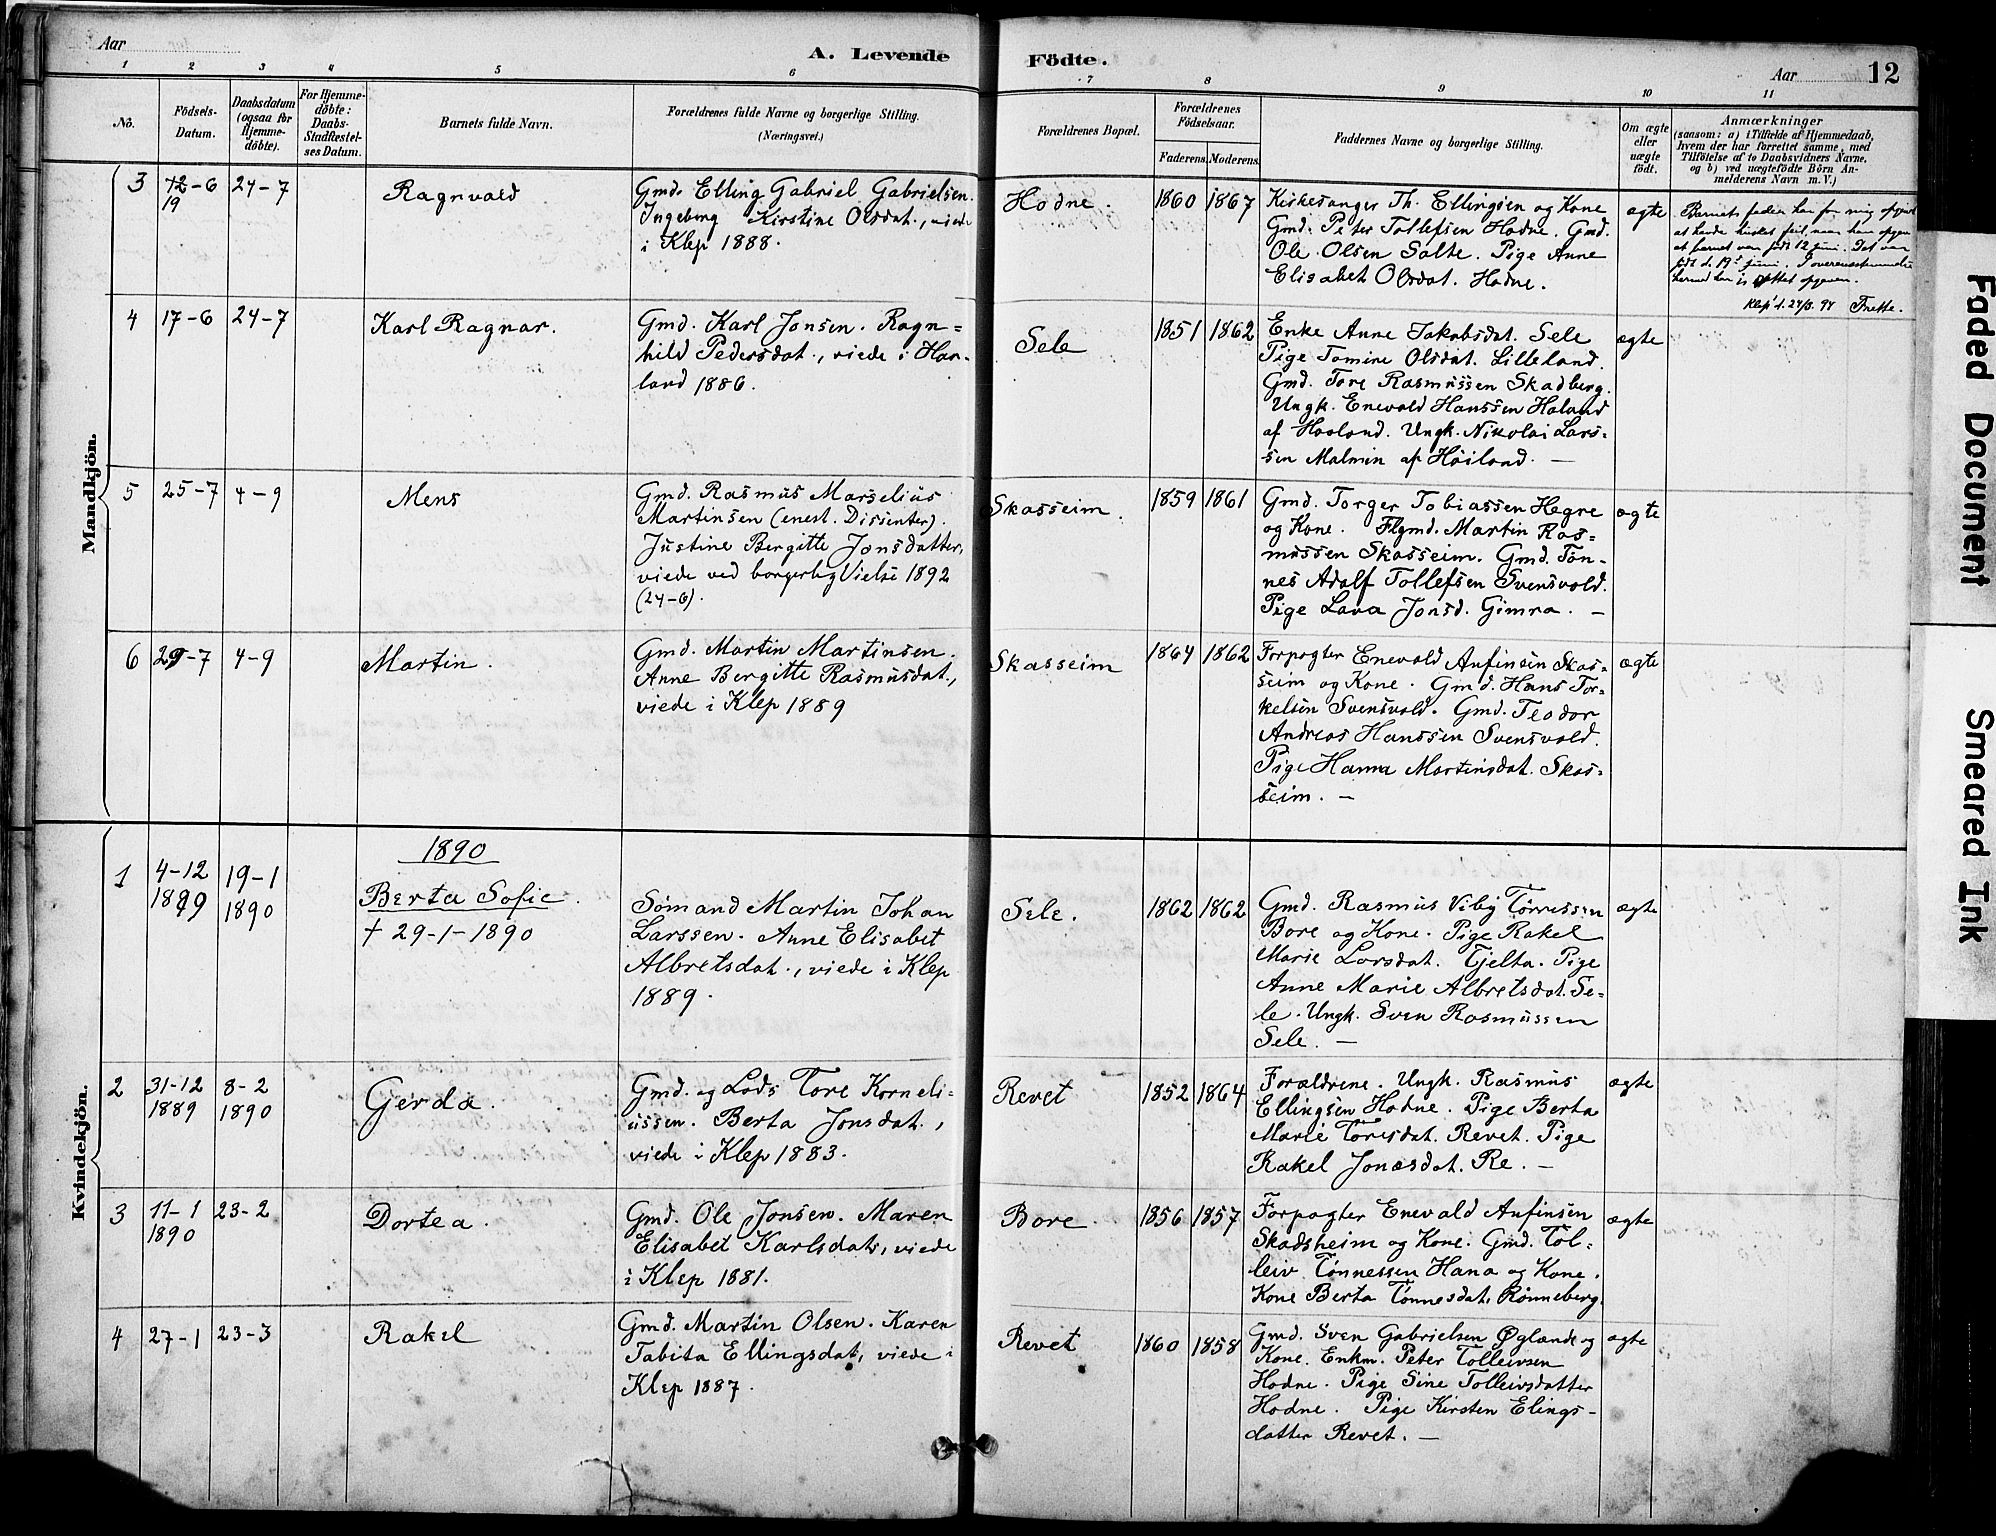 Aar
A. Levende
Födte.
Aar
12
1 2 3 4 5 6 7 8 9 10 11
No.
Födsels-
Datum.
Daabsdatum
(ogsaa for
Hjemme-
döbte).
For Hjemme-
döbte:
Daabs-
Stadfæstel-
ses Datum.
Barnets fulde Navn.
Forældrenes fulde Navne og borgerlige Stilling.
(Næringsvei.)
Forældrenes Bopæl.
Forældrenes
Födselsaar.
Faderens.
Moderens.
Faddernes Navne og borgerlige Stilling.
Om ægte
eller
uægte
födt.
Anmærkninger
(saasom: a) i Tilfælde af Hjemmedaab,
hvem der har forrettet samme, med
Tilföielse af to Daabsvidners Navne.
og b) ved uægtefödte Börn An-
melderens Navn m. V.)
Mandkjön.
3
12-6
19
24-7
Ragnvald
Gmd. Elling Gabriel Gabrielsen.
Ingeborg Kirstine Olsdat., viede
i Klep 1888.
Hodne.
1860
1867
Kirkesanger Th. Ellingsen og Kone
Gmd. Peter Tollefsen Hodne. Gmd.
Ole Olsen Salte. Pige Anne
Elisabet Olsdat. Hodne.
ægte
Barnets fader har for mig opgivet
at havde husket feil, naar han opgav
at barnet var født 12 juni. Det var
født d. 19de juni. I overensstemmelse
hermed har jeg rettet opgaven.
Klep d. 24/3. 94
4
17-6
24-7
Karl Ragnar.
Gmd. Karl Jonsen. Ragn=
hild Pedersdat., viede i Haa-
land 1886.
Sele
1851
1862
Enke Anne Jakobsdat. Sele
Pige Tomine Olsdat. Lilleland.
Gmd. Tore Rasmussen Skadberg.
Ungk. Enevald Hanssen Haland
af Haaland. Ungk. Nikolai Lars=
sen Malmin af Høiland. —
ægte
5
25-7
4-9
Mens
Gmd. Rasmus Marselius
Martinsen (enest. Dissenter).
Justine Bergitte Jonsdatter,
viede ved borgerlig Vielse 1892
(24-6).
Skasseim.
1859
1861
Gmd. Torger Tobiassen Hegre
og Kone. Flgmd. Martin Ras=
mussen Skasseim. Gmd. Tøn-
nes Adolf Tollefsen Svensvold.
Pige Lava Jonsd. Gimra. —
ægte
6
29-7
4-9
Martin.
Gmd. Martin Martinsen.
Anne Bergitte Rasmusdat.,
viede i Klep 1889
Skasseim
1864
1862
Forpagter Enevald Anfinsen Skas=
seim og Kone. Gmd. Hans Tor-
kelsen Svensvold. Gmd. Teodor
Andreas Hanssen Svensvold.
Pige Hanna Martinsdat. Skas=
seim. —
ægte
Kvindekjön.
1890
1
4-12
1889
19-1
1890
Berta Sofie.
† 29-1-1890
Sømand Martin Johan
Larssen. Anne Elisabet
Albretsdat., viede i Klep
1889.
Sele.
1862
1862
Gmd. Rasmus Viby Tørressen
Bore og Kone. Pige Rakel
Marie Larsdat. Tjelta. Pige
Anne Marie Albretsdat. Se=
le. Ungk. Sven Rasmussen
Sele. —
ægte
2
31-12
1889
8-2
1890
Gerda.
Gmd. og Lods Tore Korneli=
ussen. Berta Jonsdat.,
viede i Klep 1883.
Revet
1852
1864
Forældrene. Ungk. Rasmus
Ellingsen Hodne. Pige Berta
Marie Toresdat. Revet. Pige
Rakel Jonasdat. Re. —
ægte
3
11-1
1890
23-2
Dortea.
Gmd. Ole Jonsen. Maren
Elisabet Karlsdat., viede
i Klep 1881.
Bore.
1856
1857
Forpagter Enevald Anfinsen
Skadsheim og Kone. Gmd. Tol=
leiv Tønnessen Hana og Kone.
Kone Berta Tønnesdat. Rønneberg.
ægte
4
27-1
23-3
Rakel
Gmd. Martin Olsen. Karen
Tabita Ellingsdat., viede i
Klep 1887.
Revet
1860
1858
Gmd. Sven Gabrielsen Øglænde og
Kone. Enkm. Peter Tolleivsen
Hodne. Pige Sine Tolleivsdatter
Hodne. Pige Kirsten Elings-
datter Revet. —
ægte
Faded Document
Smeared Ink